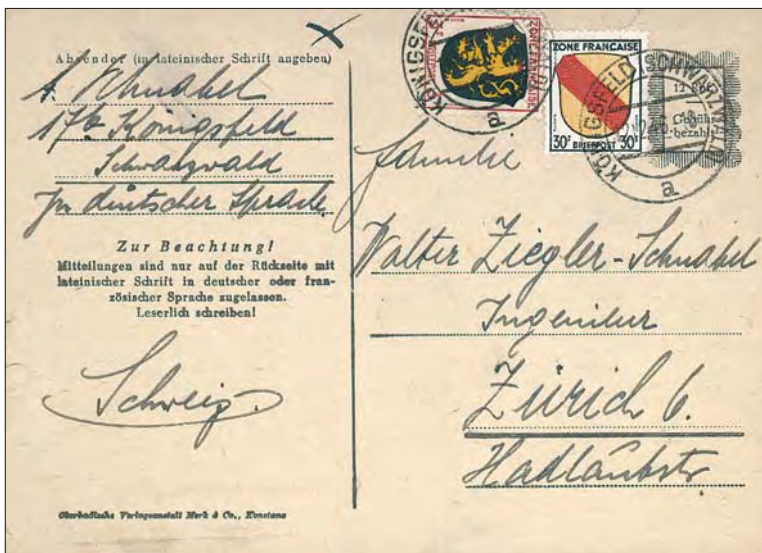 Absender (in lateinischer Schrift angeben)
A. Schnabel
17b Königsfeld
Schwarzwald
In deutscher Sprache.
Zur Beachtung!
Mitteilungen sind nur auf der Rückseite mit
lateinischer Schrift in deutscher oder fran-
zösischer Sprache zugelassen.
Leserlich schreiben!
Schweiz.
Oberbadische Verlagsanstalt Merk & Co., Konstanz
KÖNIGSFELD
a
ZONE FRANÇAISE
ZONE FRANÇAISE
30 BRIEFPOST 30
KÖNIGSFELD (SCHWARZWALD)
a
12
Gebühr
bezahlt
Familie
Walter Ziegler-Schnabel
Ingenieur
Zürich 6.
Hadlaubstr.